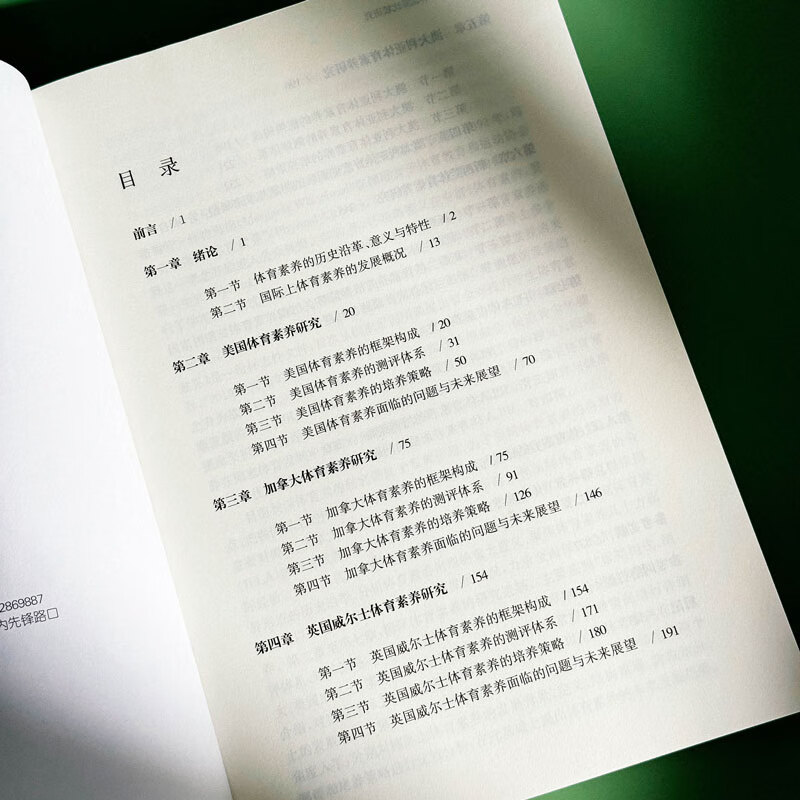 目 录
前言 / 1
第一章 绪论 / 1
第一节 体育素养的历史沿革、意义与特性 / 2
第二节 国际上体育素养的发展概况 / 13
第二章 美国体育素养研究 / 20
第一节 美国体育素养的框架构成 / 20
第二节 美国体育素养的测评体系 / 31
第三节 美国体育素养的培养策略 / 50
第四节 美国体育素养面临的问题与未来展望 / 70
第三章 加拿大体育素养研究 / 75
第一节 加拿大体育素养的框架构成 / 75
第二节 加拿大体育素养的测评体系 / 91
第三节 加拿大体育素养的培养策略 / 126
第四节 加拿大体育素养面临的问题与未来展望 / 146
第四章 英国威尔士体育素养研究 / 154
第一节 英国威尔士体育素养的框架构成 / 154
第二节 英国威尔士体育素养的测评体系 / 171
第三节 英国威尔士体育素养的培养策略 / 180
第四节 英国威尔士体育素养面临的问题与未来展望 / 191
2869887
内先锋路口